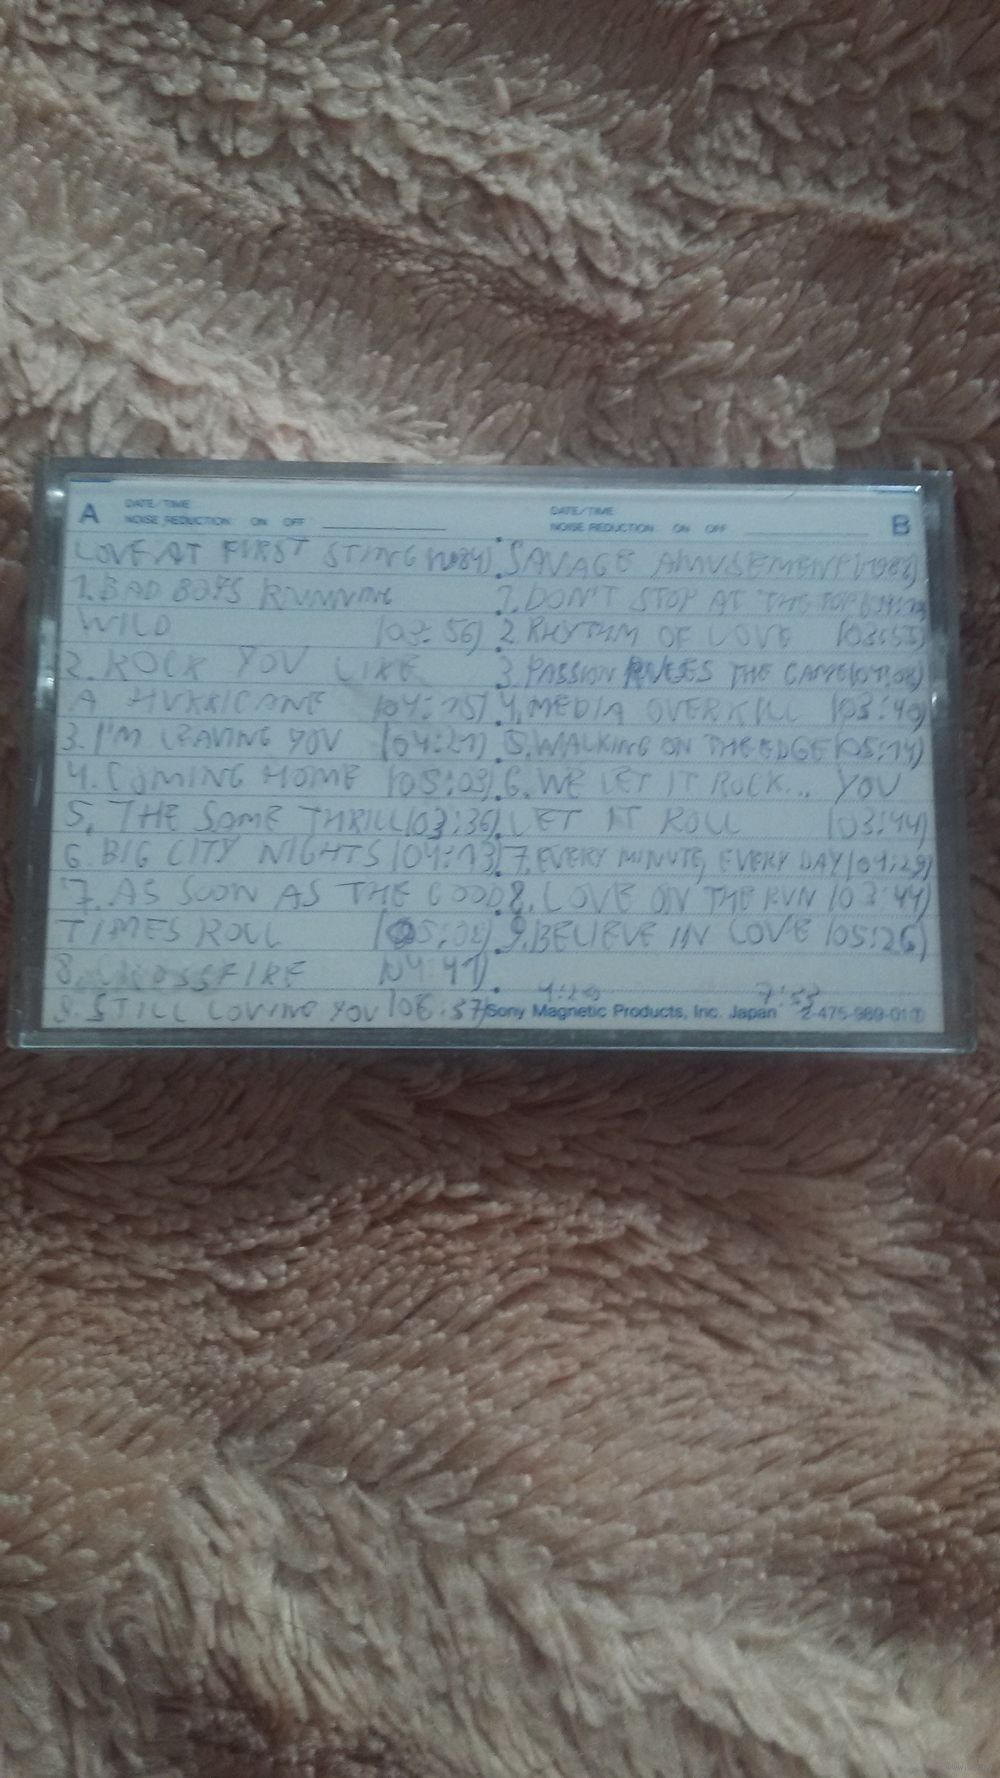 A DATE/TIME
NOISE REDUCTION ON OFF
LOVE AT FIRST STING (1984)
1. BAD BOYS RUNNING
WILD (03:56)
2. ROCK YOU LIKE
A HURRICANE (04:15)
3. I'M LEAVING YOU (04:21)
4. COMING HOME (05:03)
5. THE SAME THRILL (03:36)
6. BIG CITY NIGHTS (04:13)
7. AS SOON AS THE GOOD
TIMES ROLL
8. CROSSFIRE (04:41)
9. STILL LOVING YOU (06:37)
DATE/TIME
NOISE REDUCTION ON OFF B
SAVAGE AMUSEMENT (1988)
1. DON'T STOP AT THE TOP
2. RHYTHM OF LOVE
3. PASSION RULES THE GAME
4. MEDIA OVERKILL (03:40)
5. WALKING ON THE EDGE (05:14)
6. WE LET IT ROCK... YOU
LET IT ROLL (03:44)
7. EVERY MINUTE, EVERY DAY (04:29)
8. LOVE ON THE RUN (03:44)
9. BELIEVE IN LOVE (05:26)
7:53
Sony Magnetic Products, Inc. Japan 2-475-989-01①